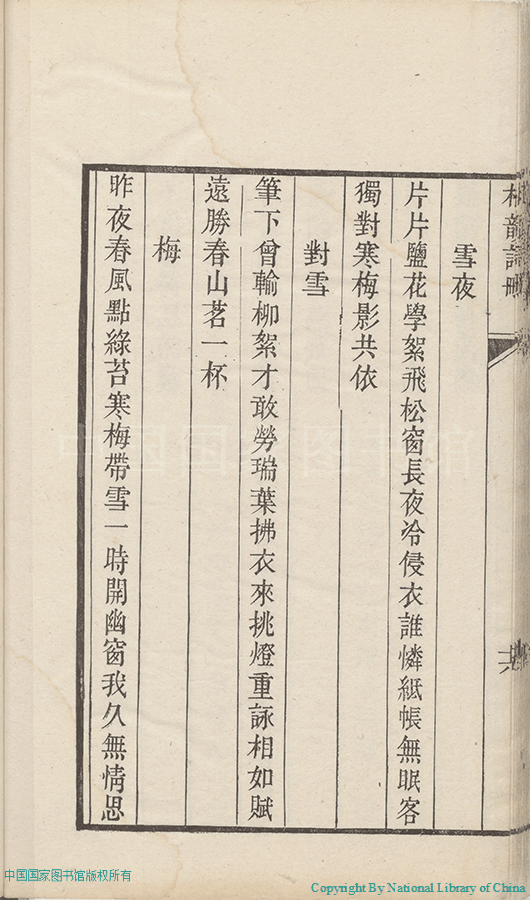 雪夜
片片鹽花學絮飛松窗長夜冷侵衣誰憐紙帳無眠客
獨對寒梅影共依
對雪
筆下曾輸柳絮才敢勞瑞葉拂衣來挑燈重詠相如賦
遠勝春山茗一杯
梅
昨夜春風點綠苔寒梅帶雪一時開幽窗我久無情思
中国国家图书馆版权所有
Copyright By National Library of China